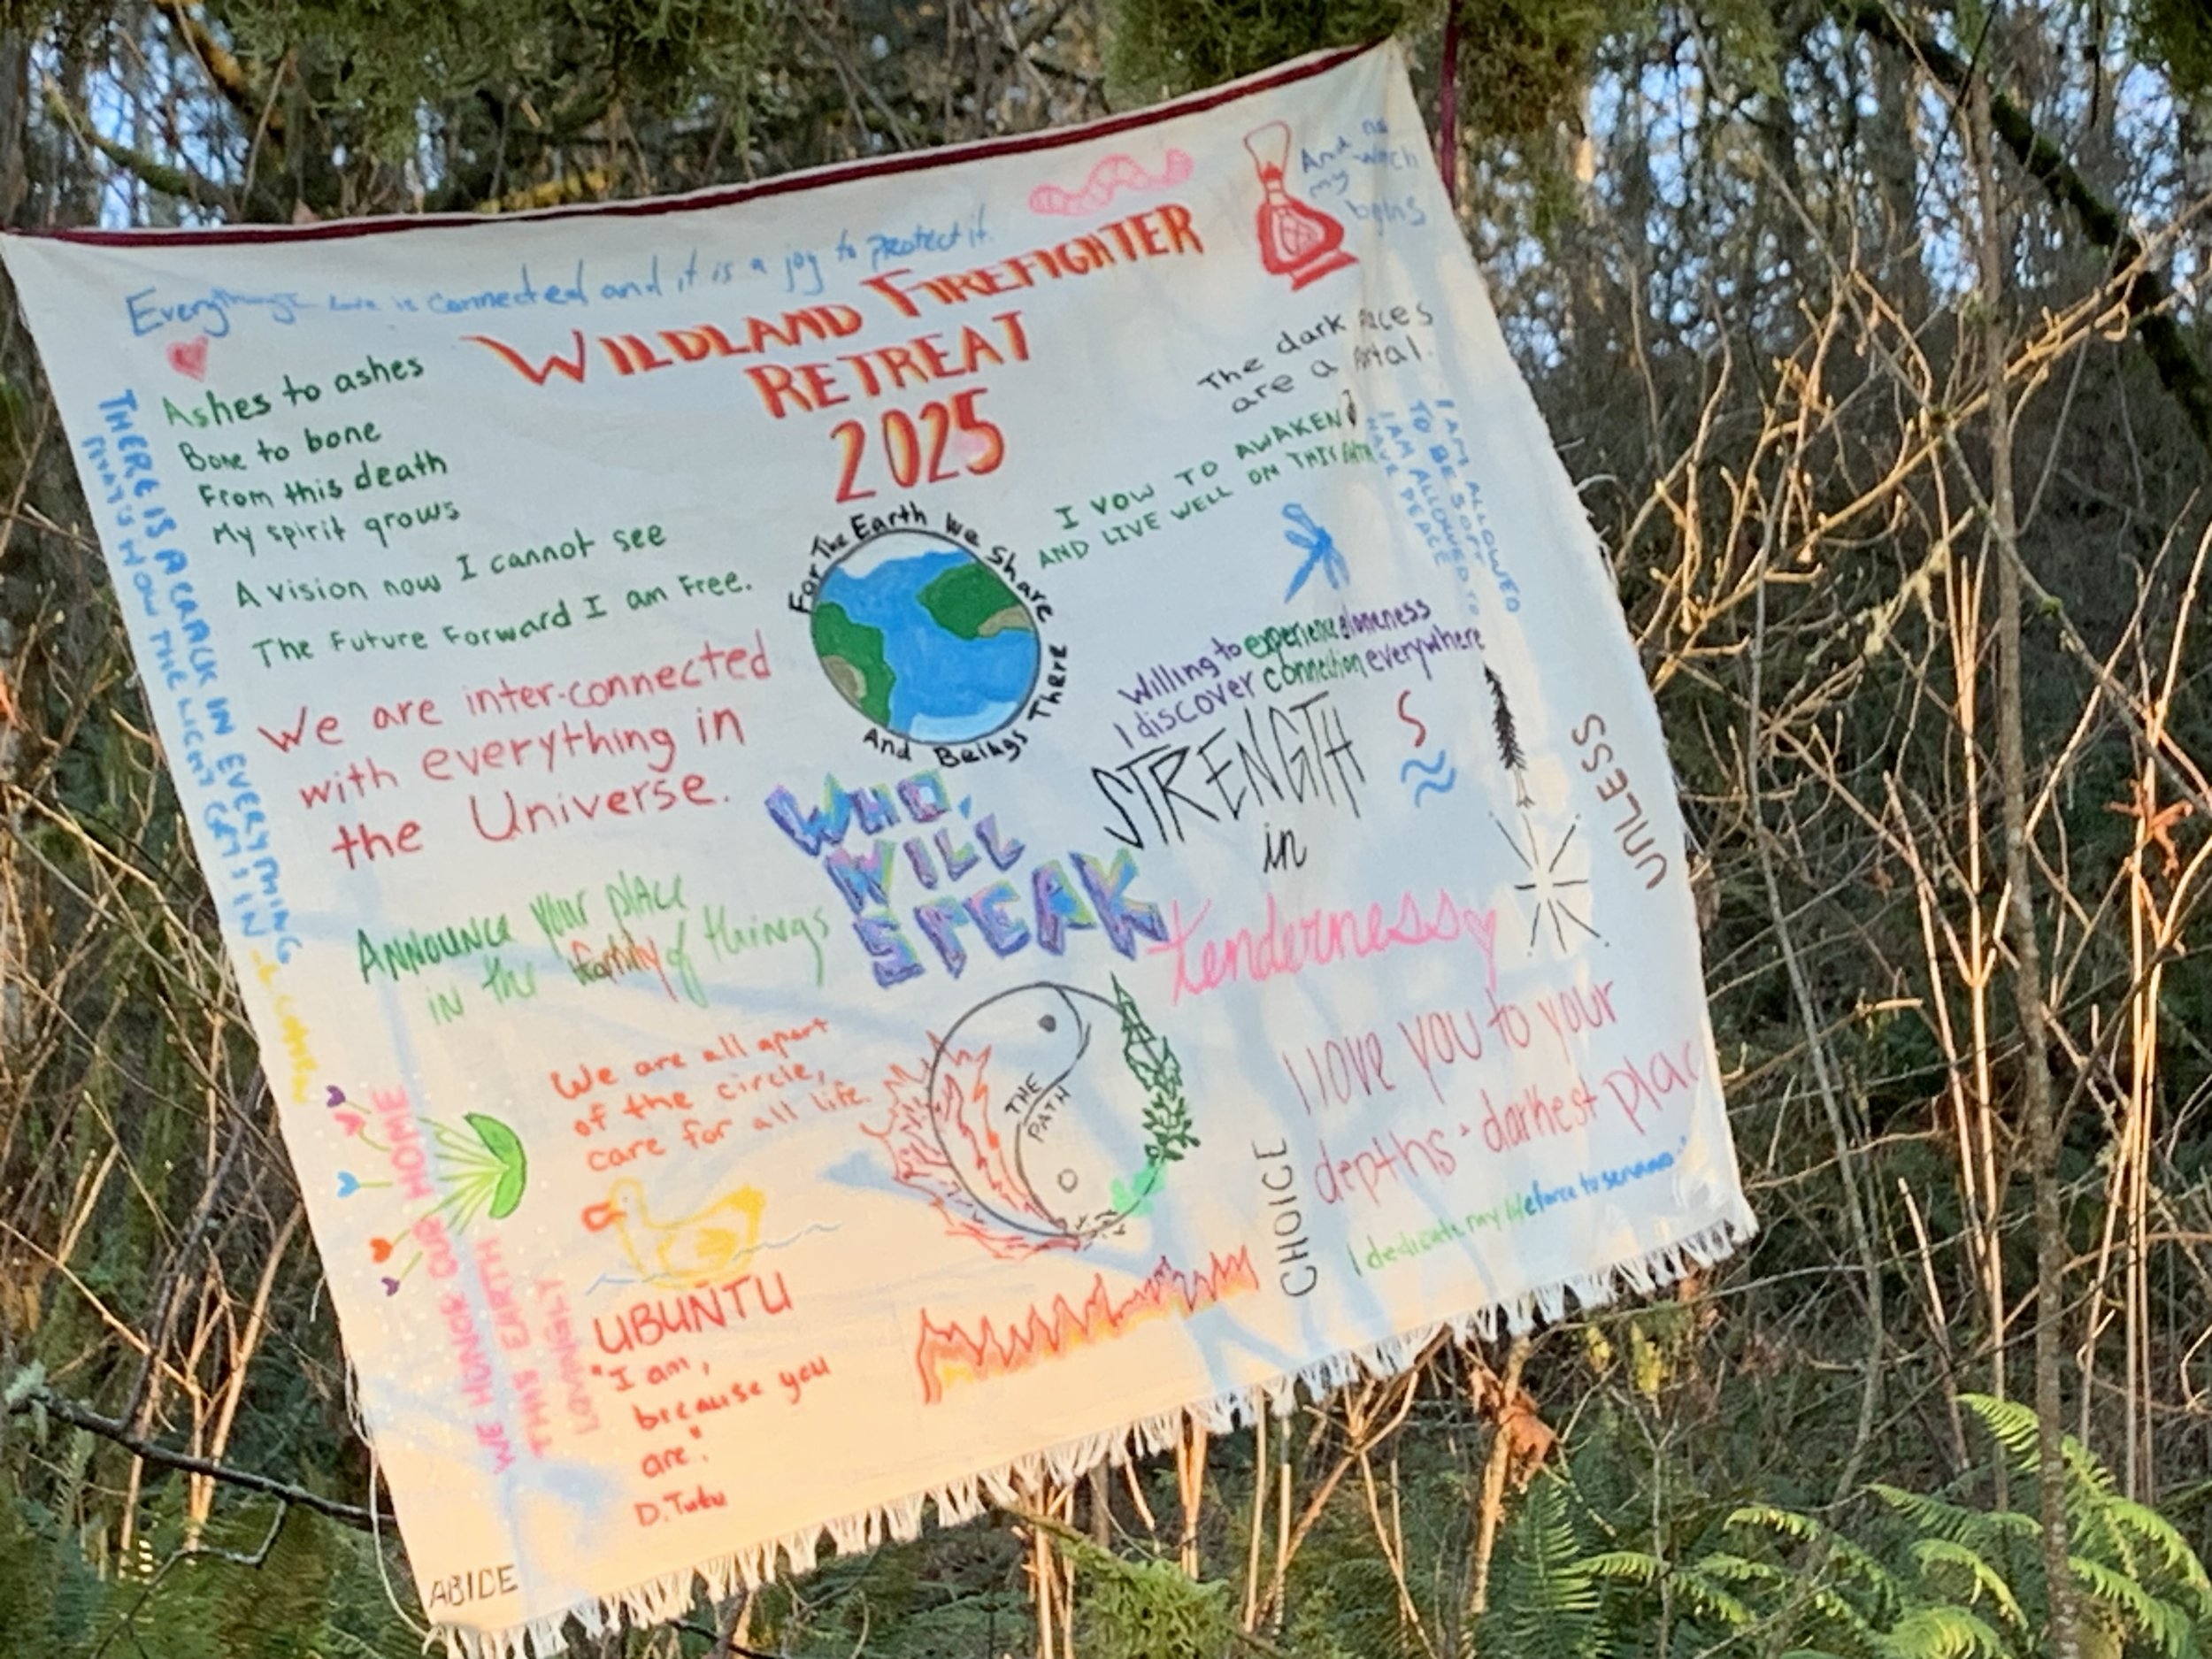 And no
watch
my
begins
Everything is connected and it is a joy to protect it.
WILDLAND FIREFIGHTER
RETREAT
2025
Ashes to ashes
Bone to bone
From this death
My spirit grows
A vision now I cannot see
The Future Forward I am Free.
THERE IS A CRACK IN EVERYTHING
THAT'S HOW THE LIGHT GETS IN
The dark places
are a portal.
I VOW TO AWAKEN
AND LIVE WELL ON THIS EARTH
I AM ALLOWED
TO BE SOFT
I AM ALLOWED TO
HAVE PEACE
For The Earth We Share
And Beings There
We are inter-connected
with everything in
the Universe.
Willing to experience aloneness
I discover connection everywhere
STRENGTH
in
tenderness
UNLESS
WHO
WILL
SPEAK
ANNOUNCE your place
in the family of things
We are all apart
of the circle,
care for all life.
THE
PATH
I love you to your
depths + darkest plac
CHOICE
I dedicate my lifeforce to
WE HONOR OUR HOME
THIS EARTH
LOVINGLY
UBUNTU
"I am,
because you
are".
D. Tutu
ABIDE